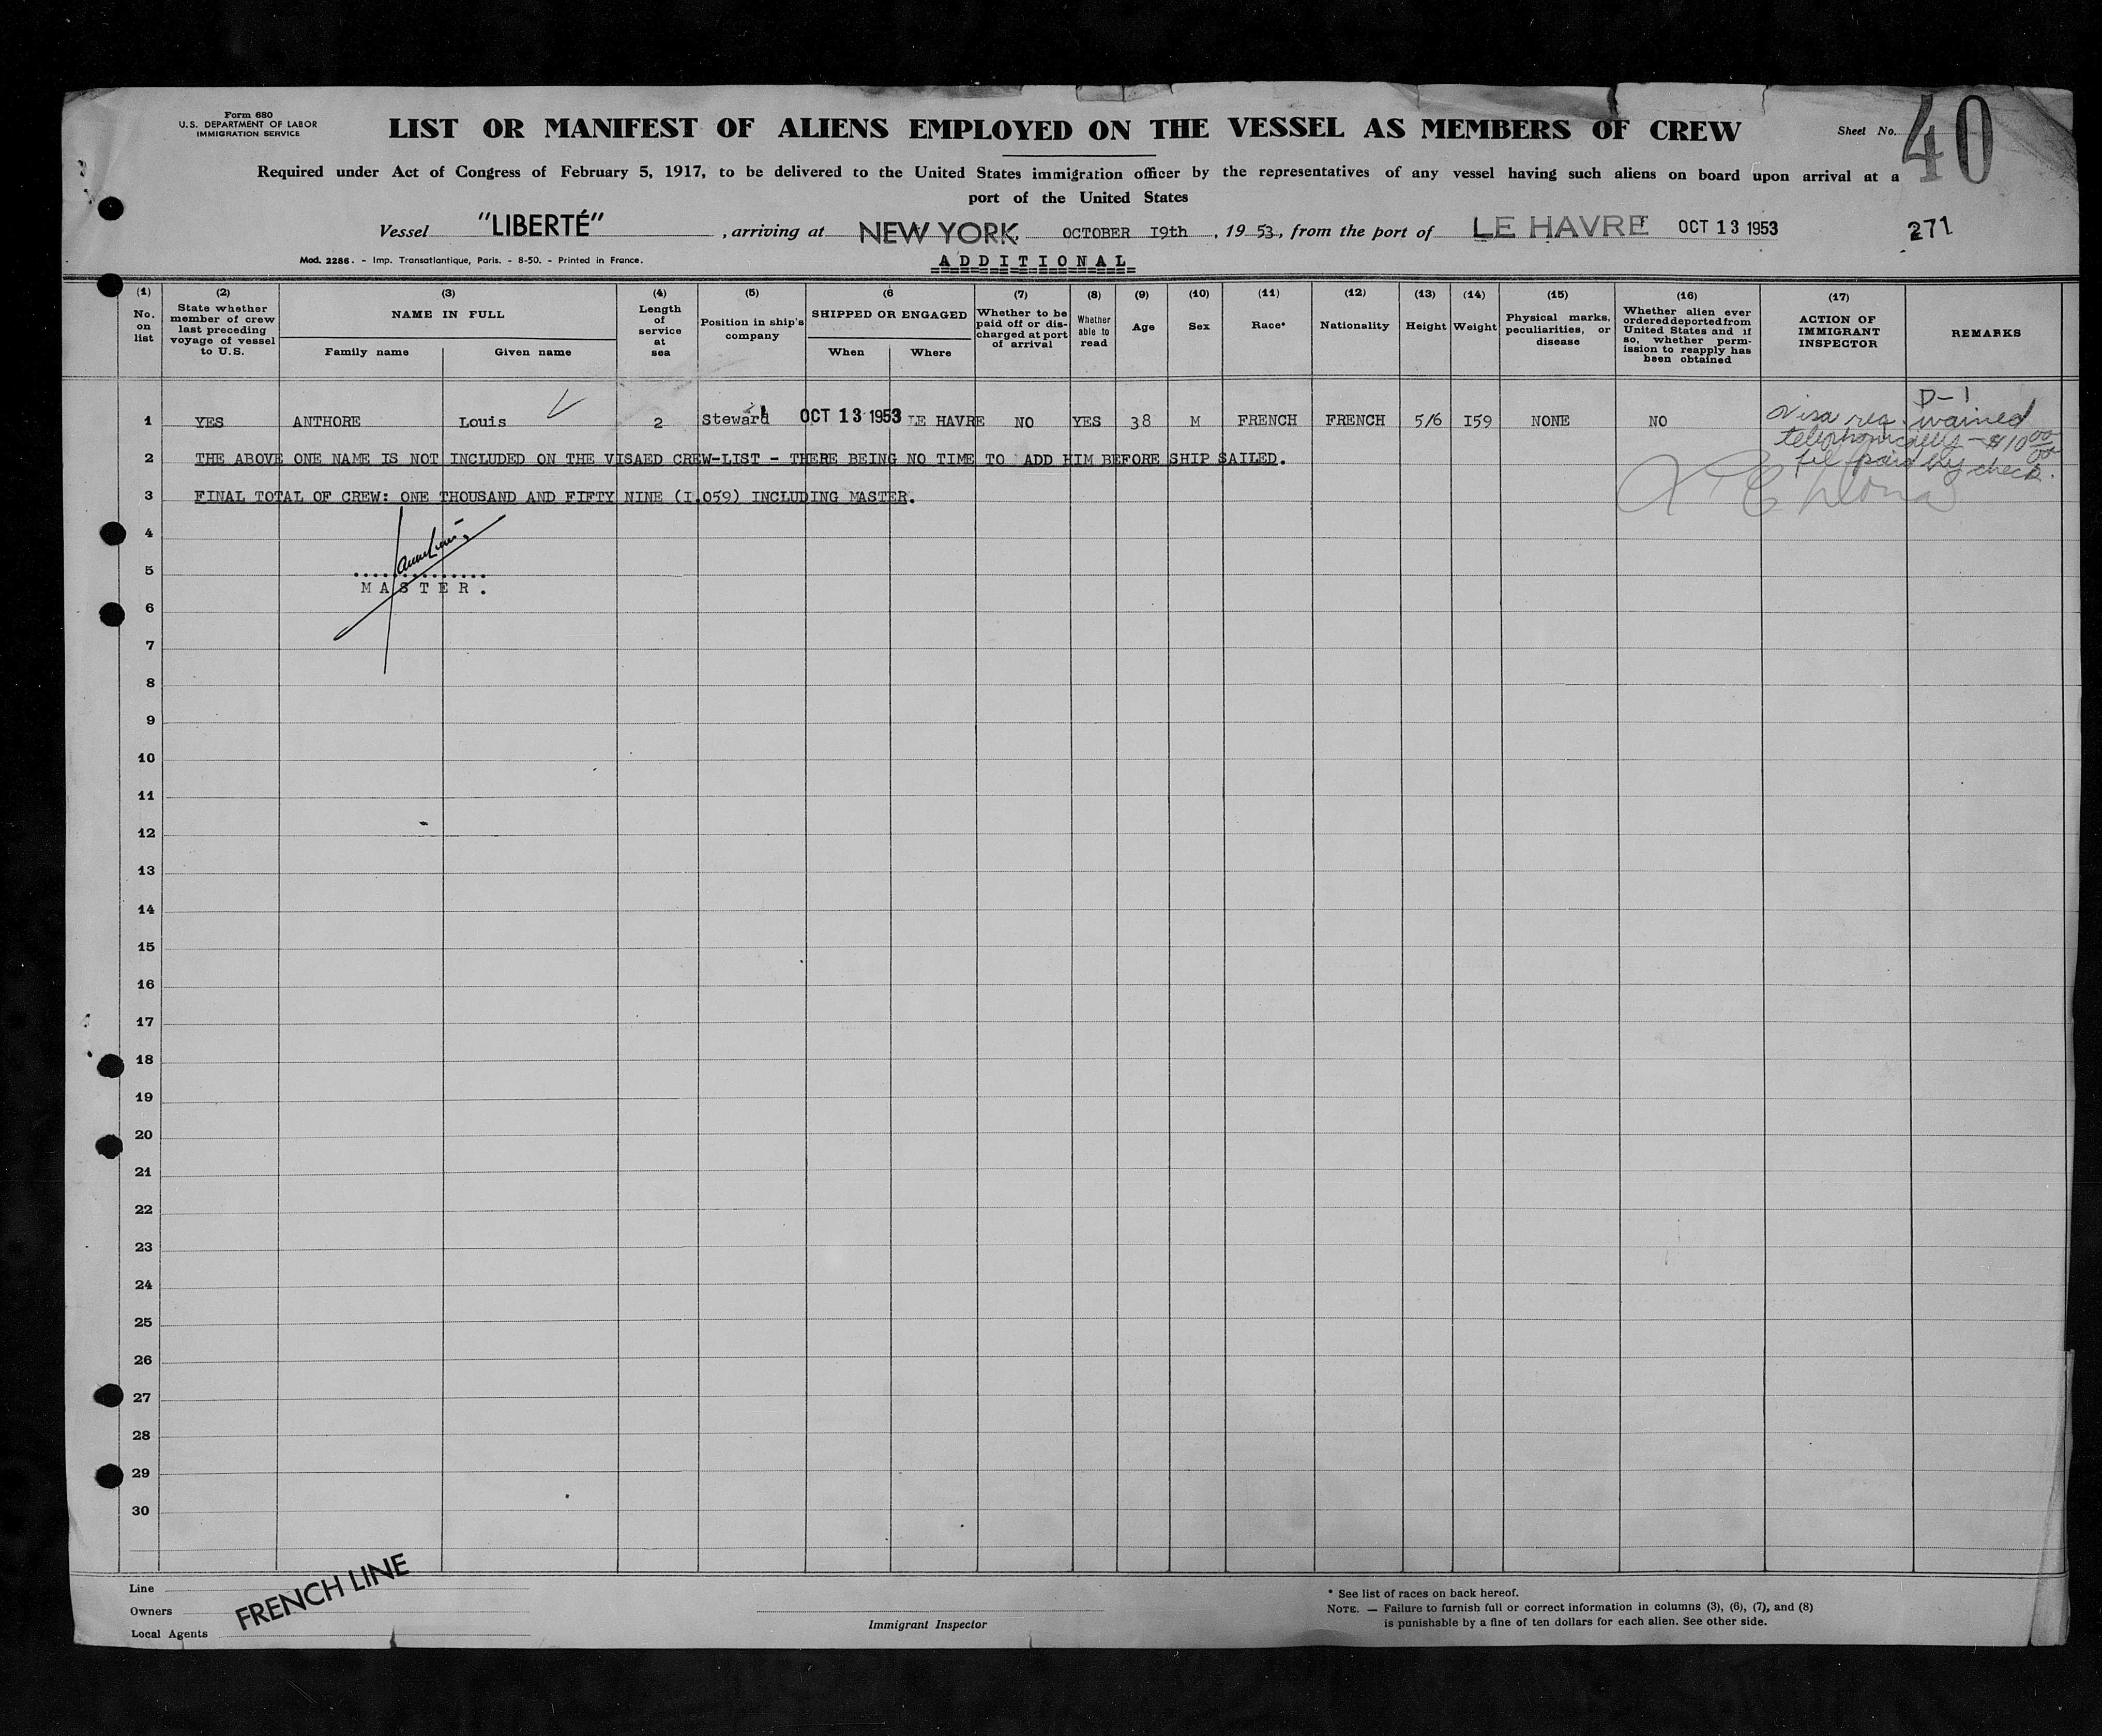 Form 680
U.S. DEPARTMENT OF LABOR
IMMIGRATION SERVICE
LIST OR MANIFEST OF ALIENS EMPLOYED ON THE VESSEL AS MEMBERS OF CREW
Sheet No. 40
Required under Act of Congress of February 5, 1917, to be delivered to the United States immigration officer by the representatives of any vessel having such aliens on board upon arrival at a
port of the United States
Vessel "LIBERTÉ", arriving at NEW YORK, OCTOBER I9th, 19 53, from the port of LE HAVRE OCT 13 1953 271
Mod. 2286. - Imp. Transatlantique, Paris. - 8-50. - Printed in France.
ADDITIONAL
(1) No. on list
(2) State whether member of crew last preceding voyage of vessel to U.S.
(3) NAME IN FULL Family name Given name
(4) Length of service at sea
(5) Position in ship's company
(6 SHIPPED OR ENGAGED When Where
(7) Whether to be paid off or discharged at port of arrival
(8) Whether able to read
(9) Age
(10) Sex
(11) Race*
(12) Nationality
(13) Height
(14) Weight
(15) Physical marks, peculiarities, or disease
(16) Whether alien ever ordered deported from United States and if so, whether permission to reapply has been obtained
(17) ACTION OF IMMIGRANT INSPECTOR
REMARKS
D-1
1 YES ANTHORE Louis 2 Steward OCT 13 1953 LE HAVRE NO YES 38 M FRENCH FRENCH 5/6 I59 NONE NO
Visa req. waived
telephonically - $10 00
fee paid by check.
2 THE ABOVE ONE NAME IS NOT INCLUDED ON THE VISAED CREW-LIST - THERE BEING NO TIME TO ADD HIM BEFORE SHIP SAILED.
3 FINAL TOTAL OF CREW: ONE THOUSAND AND FIFTY NINE (I.059) INCLUDING MASTER.
4
5
MASTER.
6
7
8
9
10
11
12
13
14
15
16
17
18
19
20
21
22
23
24
25
26
27
28
29
30
Line
Owners
Local Agents
FRENCH LINE
Immigrant Inspector
* See list of races on back hereof.
NOTE. — Failure to furnish full or correct information in columns (3), (6), (7), and (8)
is punishable by a fine of ten dollars for each alien. See other side.